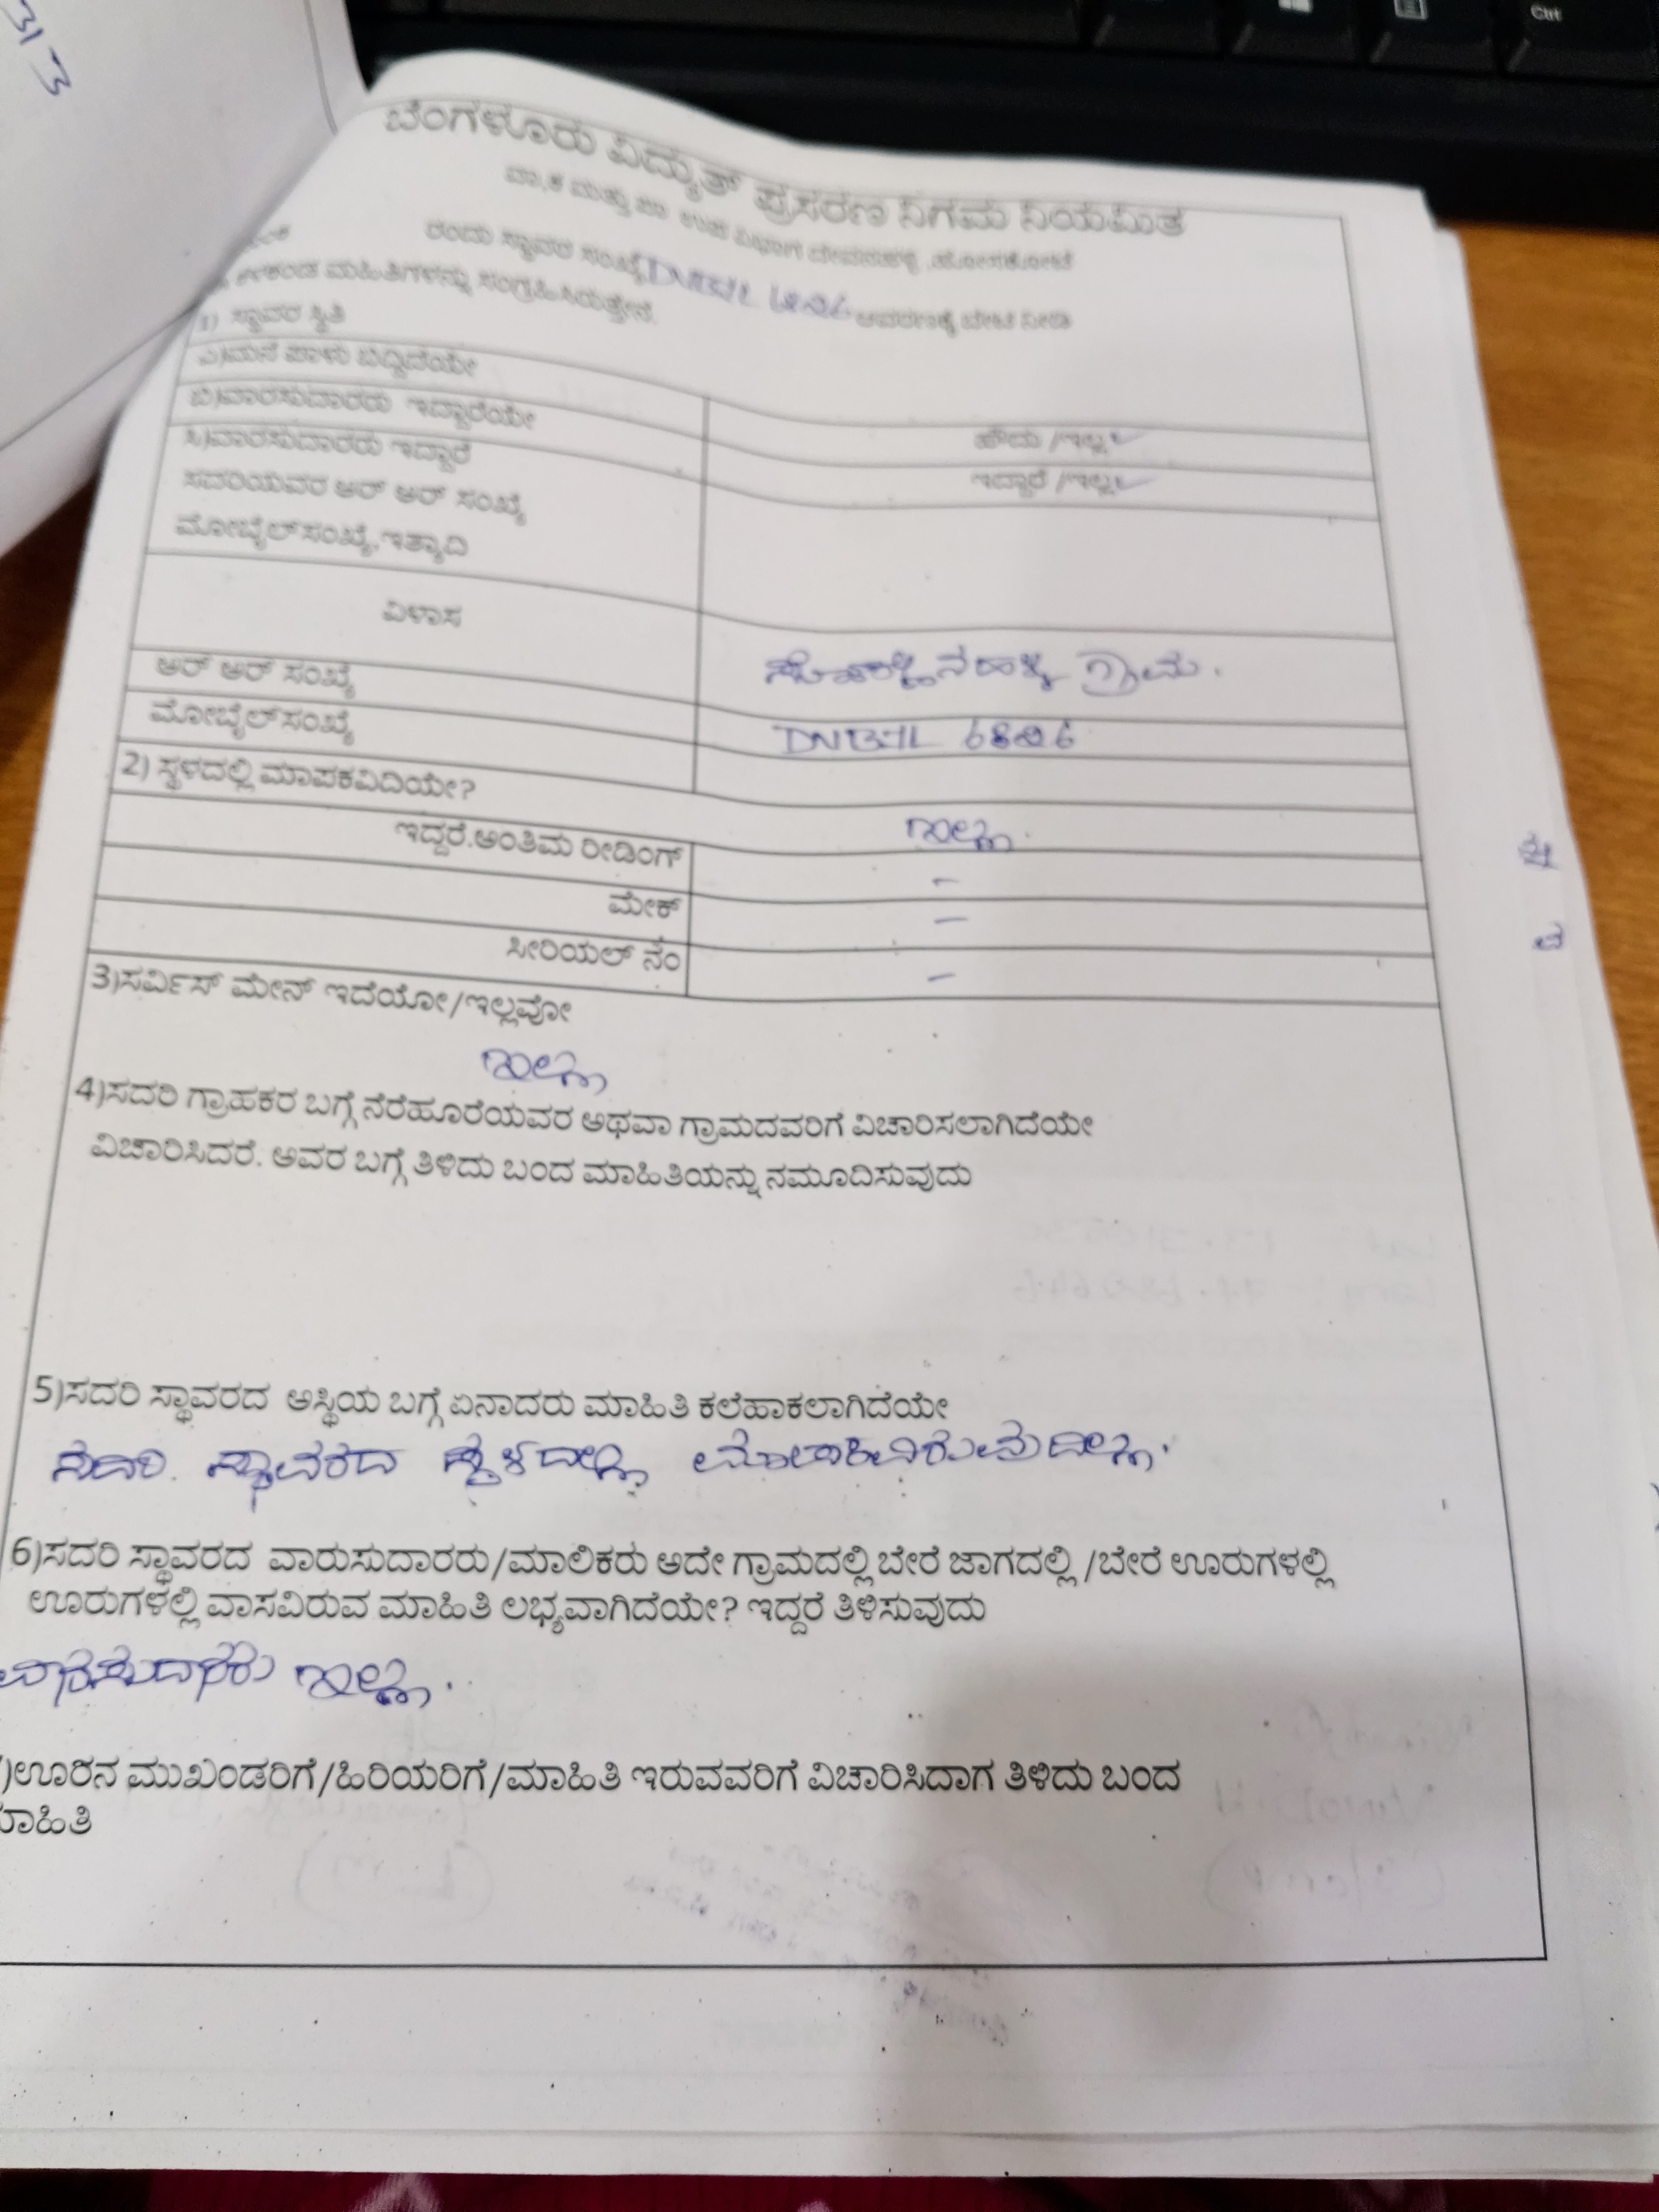 ಬೆಂಗಳೂರು ವಿದ್ಯುತ್ ಪ್ರಸರಣ ನಿಗಮ ನಿಯಮಿತ
ಮತ್ತು ಉಪ ವಿಭಾಗ ಹೊಸಕೋಟೆ
ರಂದು ಸ್ಥಾವರ ಸಂಖ್ಯೆ ಆವರಣಕ್ಕೆ ಬೇಟಿ ನೀಡಿ
ಕೆಳಕಂಡ ಮಾಹಿತಿಗಳನ್ನು ಸಂಗ್ರಹಿಸಿರುತ್ತೇನೆ.
1) ಸ್ಥಾವರ ಸ್ಥಿತಿ
ಎ)ಮನೆ ಪಾಳು ಬಿದ್ದಿದೆಯೇ ಹೌದು /ಇಲ್ಲ
ಬಿ)ವಾರಸುದಾರರು ಇದ್ದಾರೆಯೇ ಇದ್ದಾರೆ /ಇಲ್ಲ
ಸಿ)ವಾರಸುದಾರರು ಇದ್ದಾರೆ
ಸದರಿಯವರ ಆರ್ ಆರ್ ಸಂಖ್ಯೆ
ಮೋಬೈಲ್ ಸಂಖ್ಯೆ.ಇತ್ಯಾದಿ
ವಿಳಾಸ ಗ್ರಾಮ.
ಆರ್ ಆರ್ ಸಂಖ್ಯೆ
ಮೋಬೈಲ್ ಸಂಖ್ಯೆ
2) ಸ್ಥಳದಲ್ಲಿ ಮಾಪಕವಿದಿಯೇ? ಇಲ್ಲ.
ಇದ್ದರೆ.ಅಂತಿಮ ರೀಡಿಂಗ್ -
ಮೇಕ್ -
ಸೀರಿಯಲ್ ನಂ -
3)ಸರ್ವಿಸ್ ಮೇನ್ ಇದೆಯೋ/ಇಲ್ಲವೋ
ಇಲ್ಲ
4)ಸದರಿ ಗ್ರಾಹಕರ ಬಗ್ಗೆ ನೆರೆಹೂರೆಯವರ ಅಥವಾ ಗ್ರಾಮದವರಿಗೆ ವಿಚಾರಿಸಲಾಗಿದೆಯೇ
ವಿಚಾರಿಸಿದರೆ. ಅವರ ಬಗ್ಗೆ ತಿಳಿದು ಬಂದ ಮಾಹಿತಿಯನ್ನು ನಮೂದಿಸುವುದು
5)ಸದರಿ ಸ್ಥಾವರದ ಅಸ್ಥಿಯ ಬಗ್ಗೆ ಏನಾದರು ಮಾಹಿತಿ ಕಲೆಹಾಕಲಾಗಿದೆಯೇ
ಸದರಿ. ಸ್ಥಾವರದ ಸ್ಥಳದಲ್ಲಿ
6)ಸದರಿ ಸ್ಥಾವರದ ವಾರುಸುದಾರರು/ಮಾಲಿಕರು ಅದೇ ಗ್ರಾಮದಲ್ಲಿ ಬೇರೆ ಜಾಗದಲ್ಲಿ /ಬೇರೆ ಊರುಗಳಲ್ಲಿ
ಊರುಗಳಲ್ಲಿ ವಾಸವಿರುವ ಮಾಹಿತಿ ಲಭ್ಯವಾಗಿದೆಯೇ? ಇದ್ದರೆ ತಿಳಿಸುವುದು
ವಾರಸುದಾರರು ಇಲ್ಲ.
)ಊರಿನ ಮುಖಂಡರಿಗೆ/ಹಿರಿಯರಿಗೆ/ಮಾಹಿತಿ ಇರುವವರಿಗೆ ವಿಚಾರಿಸಿದಾಗ ತಿಳಿದು ಬಂದ
ಮಾಹಿತಿ
Ctrl